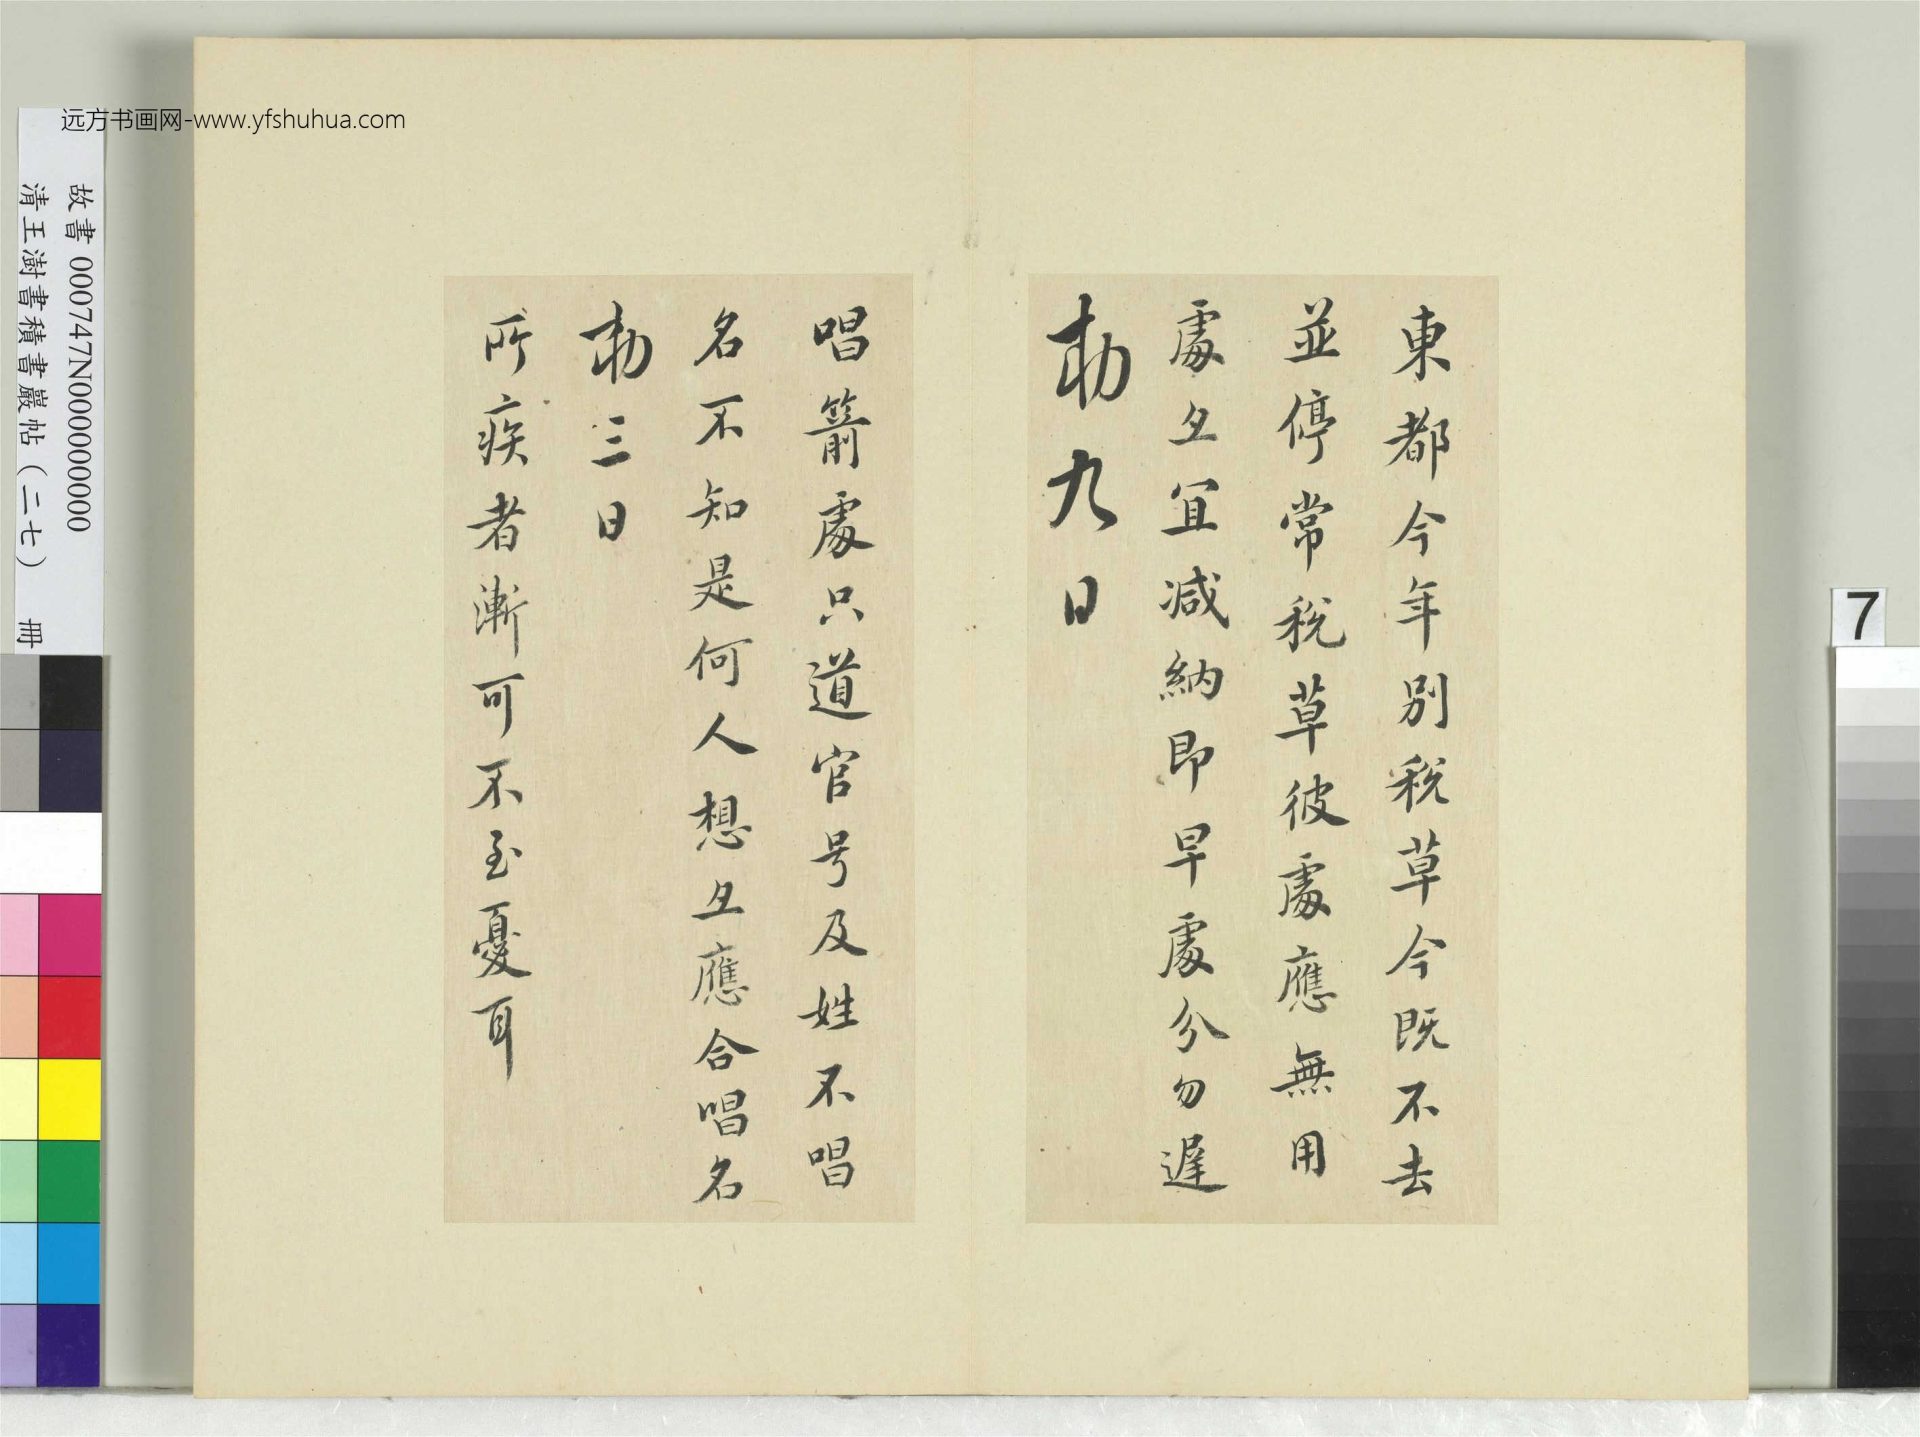 远方书画网-www.yfshuhua.com
故書 000747N000000000
清王澍書積書巖帖（二七） 冊
7
東都今年別稅草今既不去
並停常稅草彼處應無用
處亦宜減納即早處分勿遲
勅九日
唱箭處只道官号及姓不唱
名不知是何人想亦應合唱名
勅三日
所疾者漸可不至憂耳